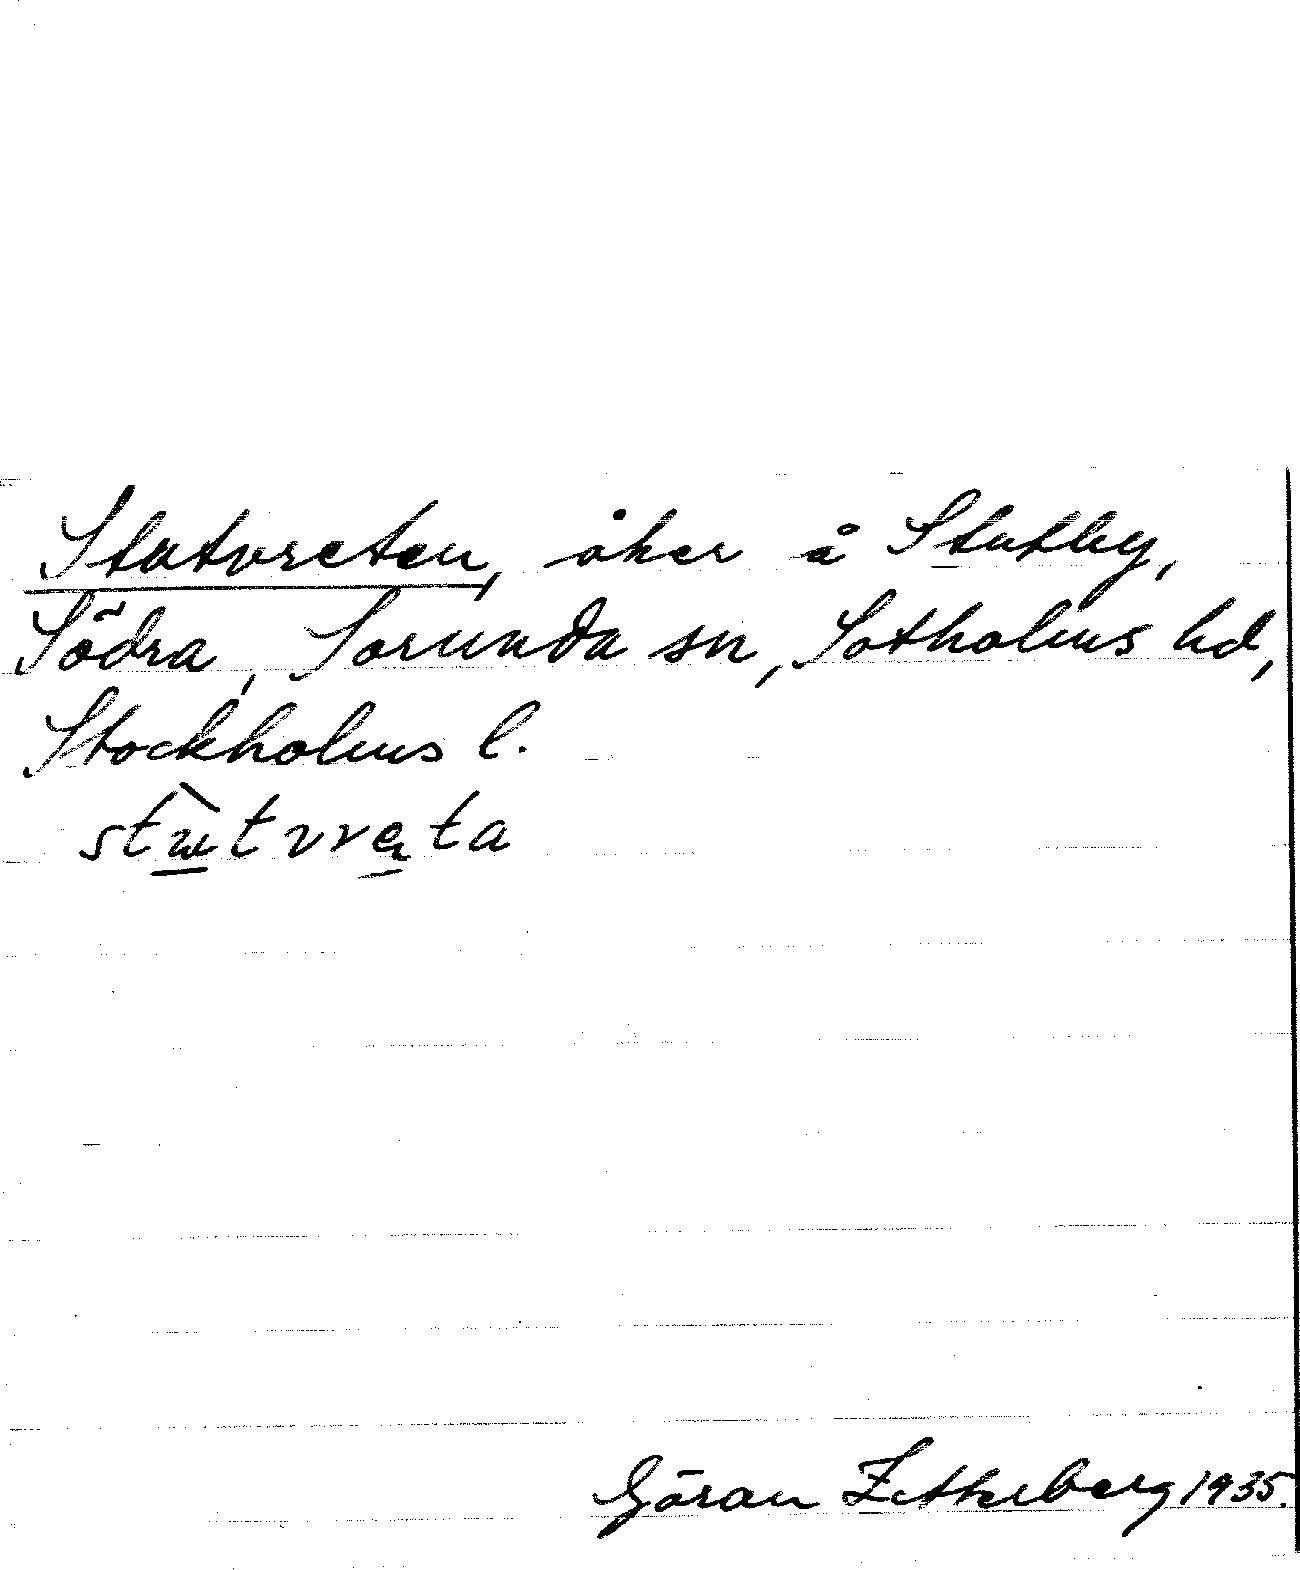 Stutvreten, åker å Stutby,
Södra, Sorunda sn, Sotholms hd,
Stockholms l.
stɯ̀tvreta
Göran Zetherberg 1935.